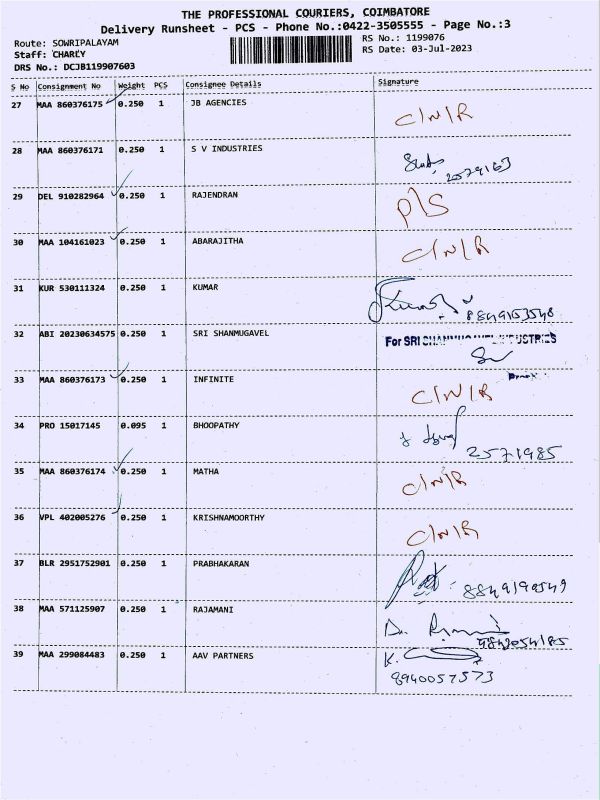 THE PROFESSIONAL COURIERS, COIMBATORE
Delivery Runsheet - PCS - Phone No.:0422-3505555 - Page No.:3
Route: SOWRIPALAYAM RS No.: 1199076
Staff: CHARLY RS Date: 03-Jul-2023
DRS No.: DCJB119907603
S No Consignment No Weight PCS Consignee Details Signature
27 MAA 860376175 0.250 1 JB AGENCIES C/N/R
28 MAA 860376171 0.250 1 S V INDUSTRIES 2579163
29 DEL 910282964 0.250 1 RAJENDRAN P/S
30 MAA 104161023 0.250 1 ABARAJITHA C/N/R
31 KUR 530111324 0.250 1 KUMAR 8849153548
32 ABI 20230634575 0.250 1 SRI SHANMUGAVEL For SRI SHANMUGAVEL INDUSTRIES
33 MAA 860376173 0.250 1 INFINITE C/N/R
34 PRO 15017145 0.095 1 BHOOPATHY 2571985
35 MAA 860376174 0.250 1 MATHA C/N/R
36 VPL 402005276 0.250 1 KRISHNAMOORTHY C/N/R
37 BLR 2951752901 0.250 1 PRABHAKARAN
38 MAA 571125907 0.250 1 RAJAMANI
39 MAA 299084483 0.250 1 AAV PARTNERS K.
8940057573